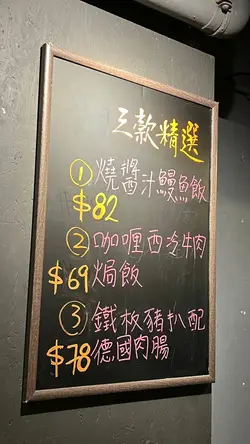 三款精選
①燒醬汁鰻魚飯
$82
②咖喱西冷牛肉
$69焗飯
③鐵板豬扒配
$78德國肉腸